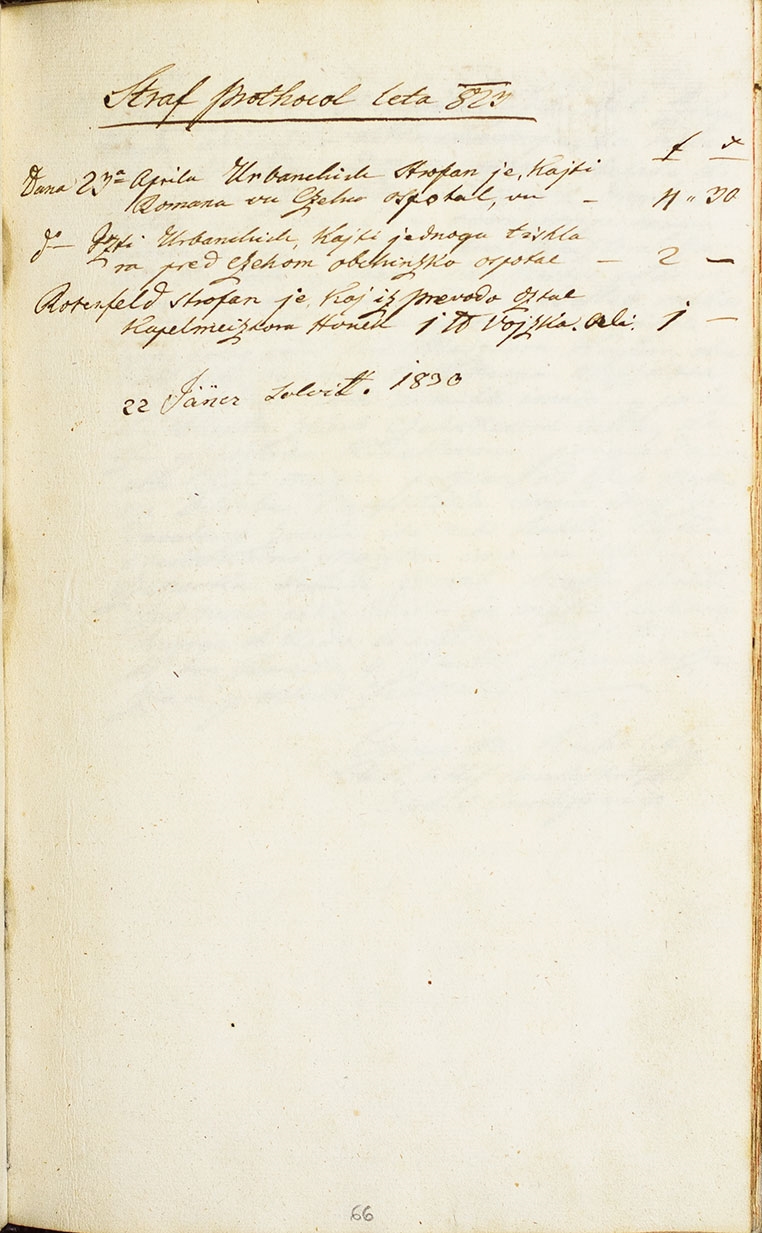 Straf prothocol leta 823
f x
Dana 23a Aprila Urbanchich Strofan je, kajti
Romana vu Czehu ospotal, vu — 4 " 30
do — Iszti Urbanchich, kajti jednoga tiskla
ra pred Czehom obchinzko ospotal — 2 —
Rosenfeld strofan je, kaj iz prevoda osztal
Kapelmeisztora Honek j tt Vojzka. 1 —
22 Jäner solvitt. 1830
66